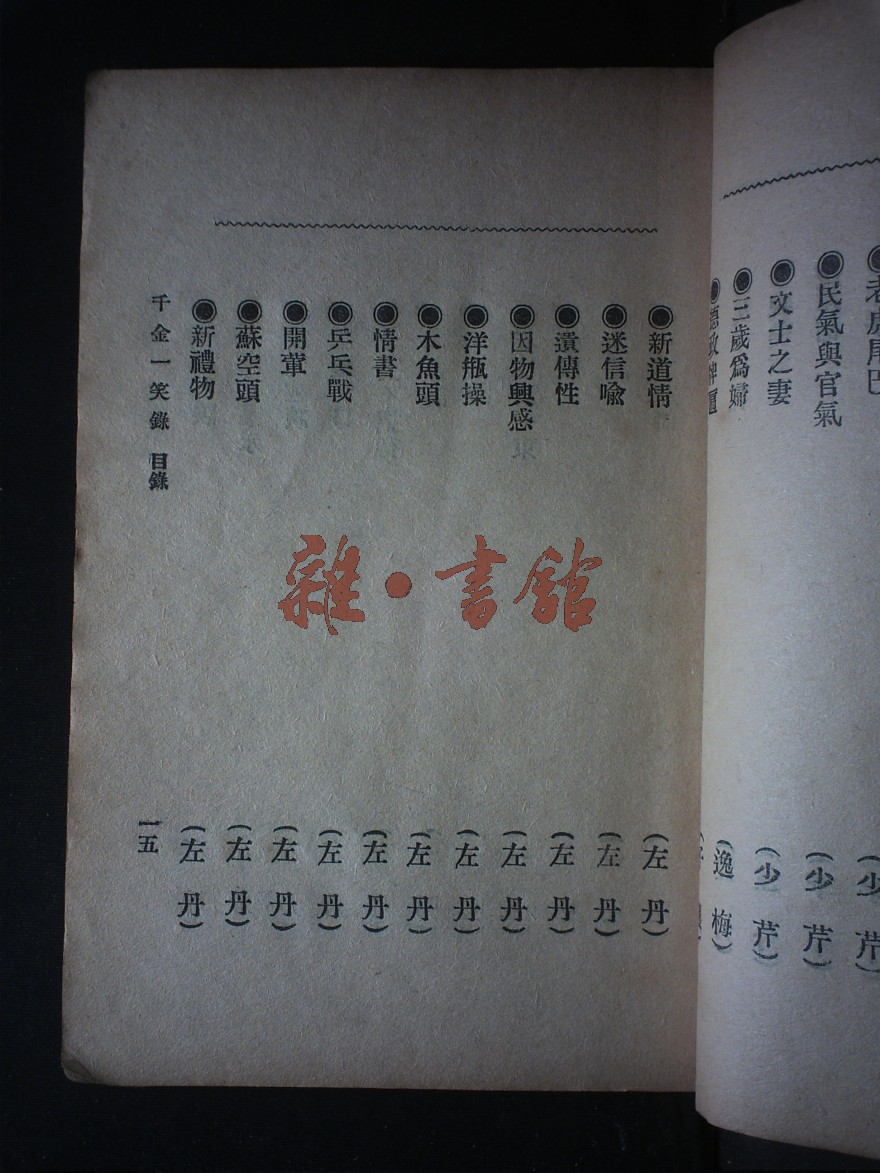 老虎尾巴 (少芹
民氣與官氣 (少芹)
文士之妻 (少芹)
三歲爲婦 (逸梅)
德政
新道情 (左丹)
迷信喩 (左丹)
遺傳性 (左丹)
因物興感 (左丹)
洋瓶操 (左丹)
木魚頭 (左丹)
情書 (左丹)
乒乓戰 (左丹)
開葷 (左丹)
蘇空頭 (左丹)
新禮物 (左丹)
千金一笑錄 目錄 一五
雜·書館